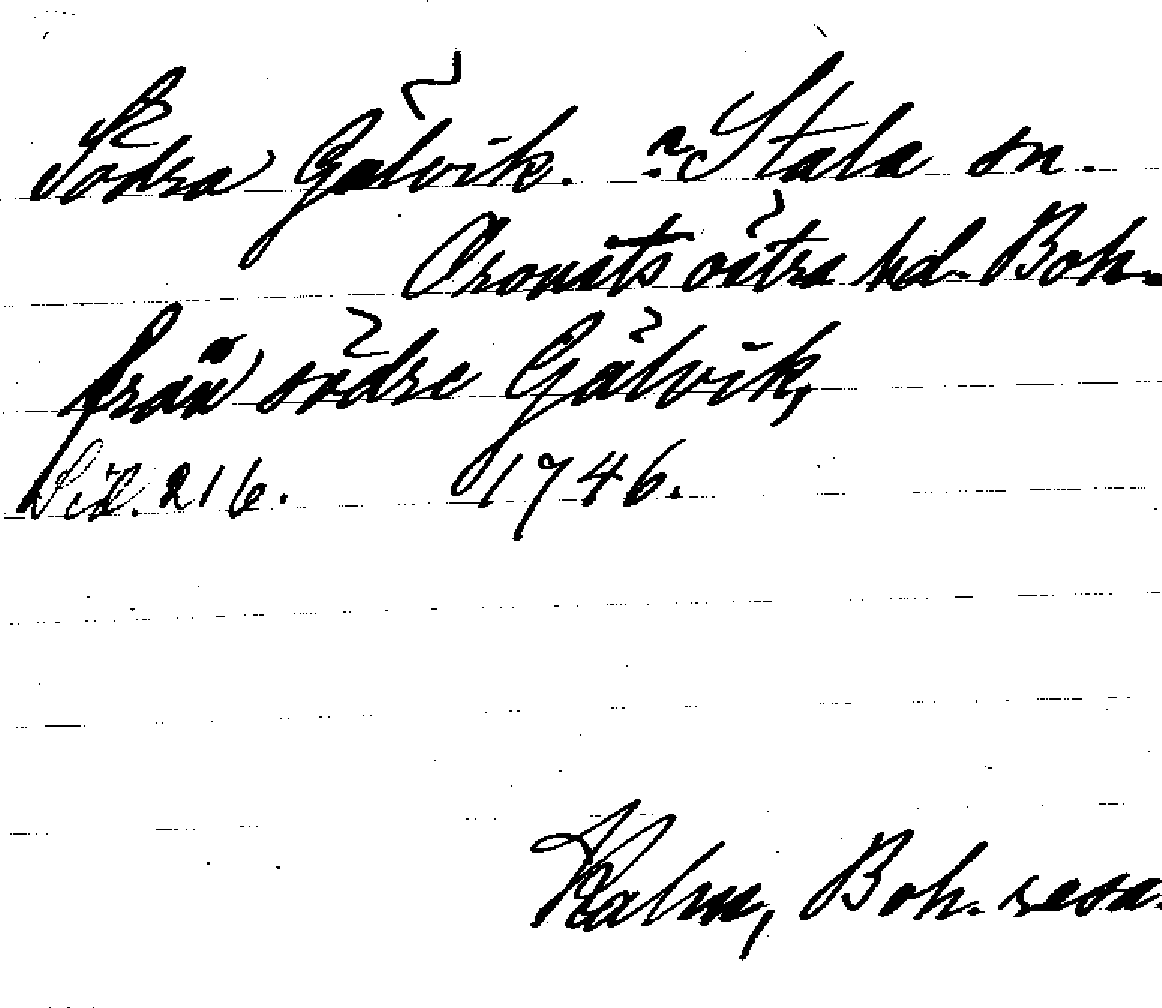 Södra Gälvik. ? Stala sn.
Orousts östra hd. Boh.
från södre Gälvik,
Sid. 216. 1746.
Kalm, Boh. resa.